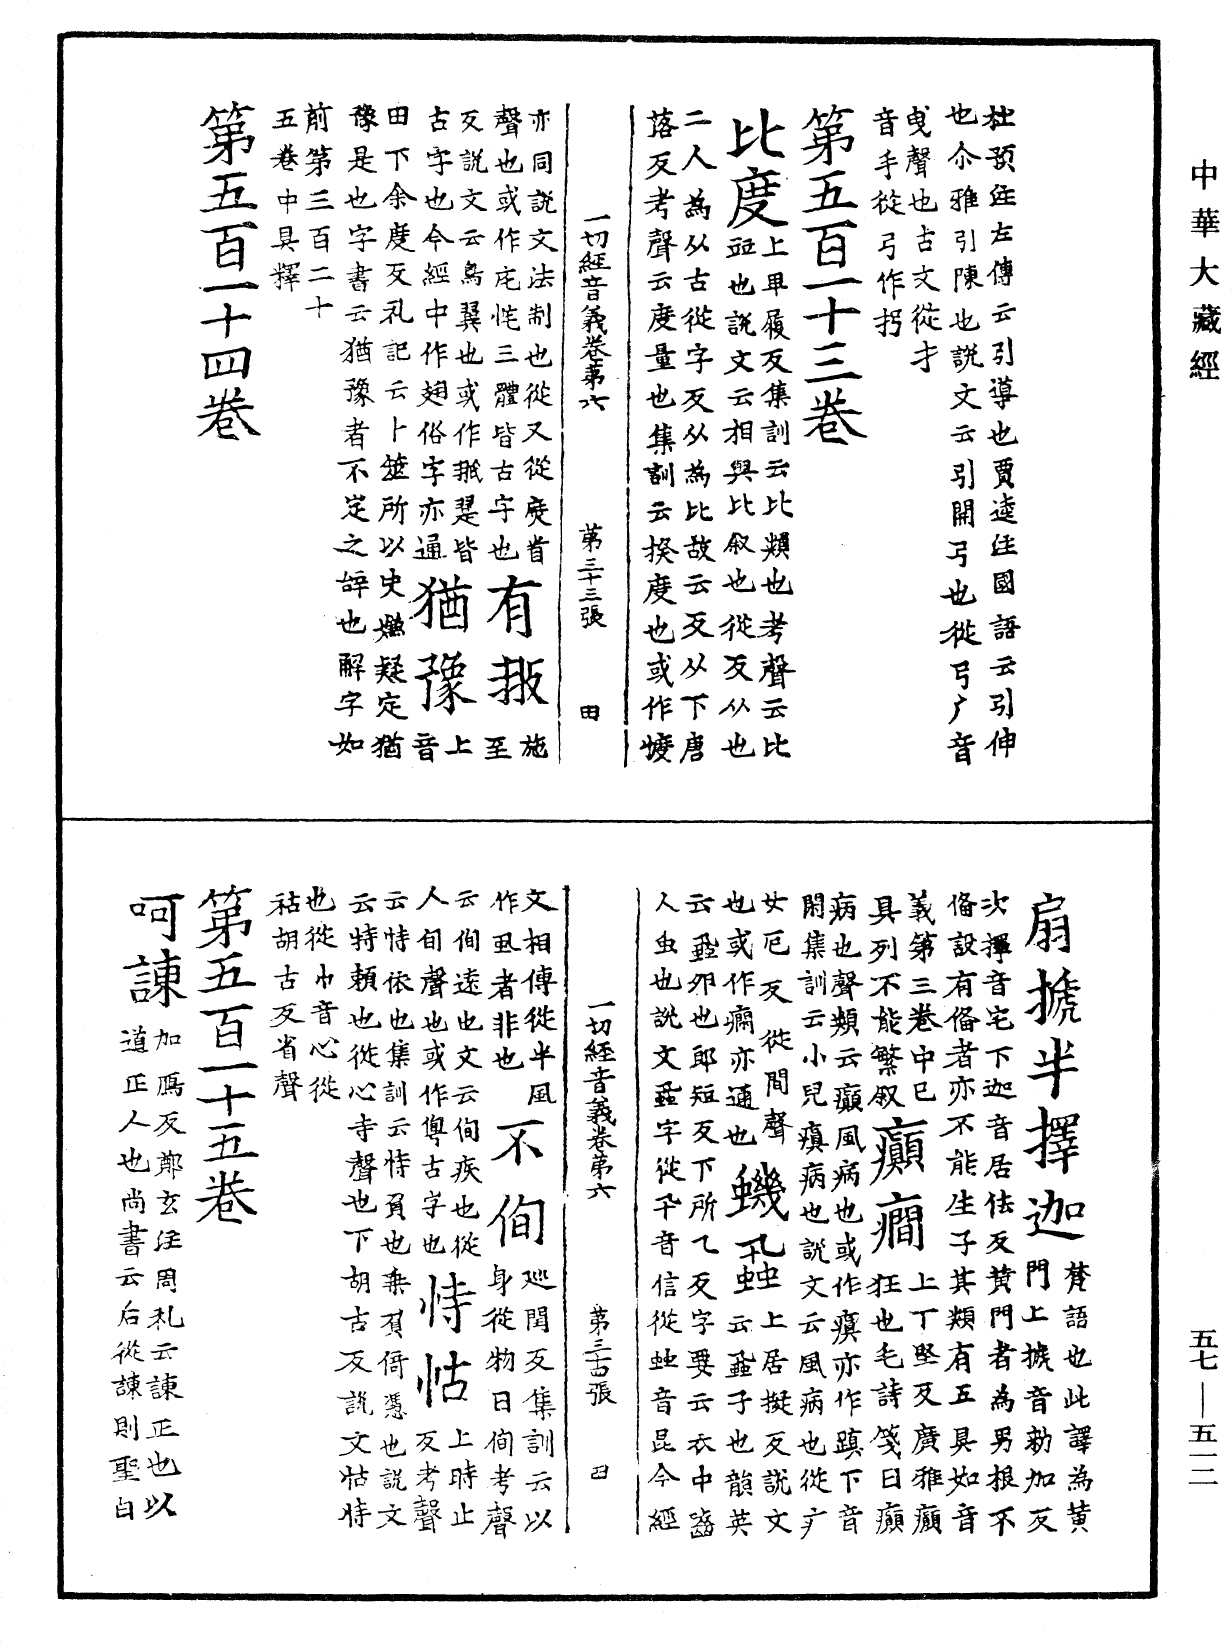 中華大藏經
杜預注左傳云引導也賈逵注國語云引伸
也尒雅引陳也說文云引開弓也從弓厂音
曳聲也古文從才
音手從弓作𢪏
第五百一十三卷
比度
上卑履反集訓云比類也考聲云比
㽬也說文云相與比叙也從反从也
二人為从古從字反从為比故云反从下唐
落反考聲云度量也集訓云揆度也或作㦜
一切經音義卷第六 第三十三張 田
亦同說文法制也從又從庶省
聲也或作宅㡯三體皆古字也
有翄
施至
反說文云鳥翼也或作𦐊翨皆
古字也今經中作翅俗字亦通
猶豫
上音
由下余度反礼記云卜筮所以史㜝疑定猶
豫是也字書云猶豫者不定之辝也解字如
前第三百二十
五卷中具釋
第五百一十四卷
扇搋半擇迦
梵語也此譯為黄
門上搋音勑加反
次擇音宅下迦音居佉反黄門者為男根不
俻設有俻者亦不能生子其類有五具如音
義第三卷中已
具列不能繁叙
癲癎
上丁堅反廣雅癲
狂也毛詩箋曰癲
病也聲類云癲風病也或作瘨亦作蹎下音
閑集訓云小兒瘨病也說文云風病也從疒
女厄反從間聲
也或作癇亦通也
蟣𧈢
上居擬反說文
云蝨子也韻英
云蝨夘也郎短反下所乙反字要云衣中齧
人虫也說文蝨字從卂音信從䖵音昆今經
一切經音義卷第六 第三十四張 田
文相傳從半風
作虱者非也
不侚
巡閏反集訓云以
身從物曰侚考聲
云侚遠也文云侚疾也從
人旬聲也或作㑺古字也
恃怙
上時止
反考聲
云恃依也集訓云恃負也乘負倚憑也說文
云恃頼也從心寺聲也下胡古反說文怙恃
也從忄音心從
祜胡古反省聲
第五百一十五卷
呵諫
加鴈反鄭玄注周礼云諫正也以
道正人也尚書云后從諫則聖白
五七—五一二